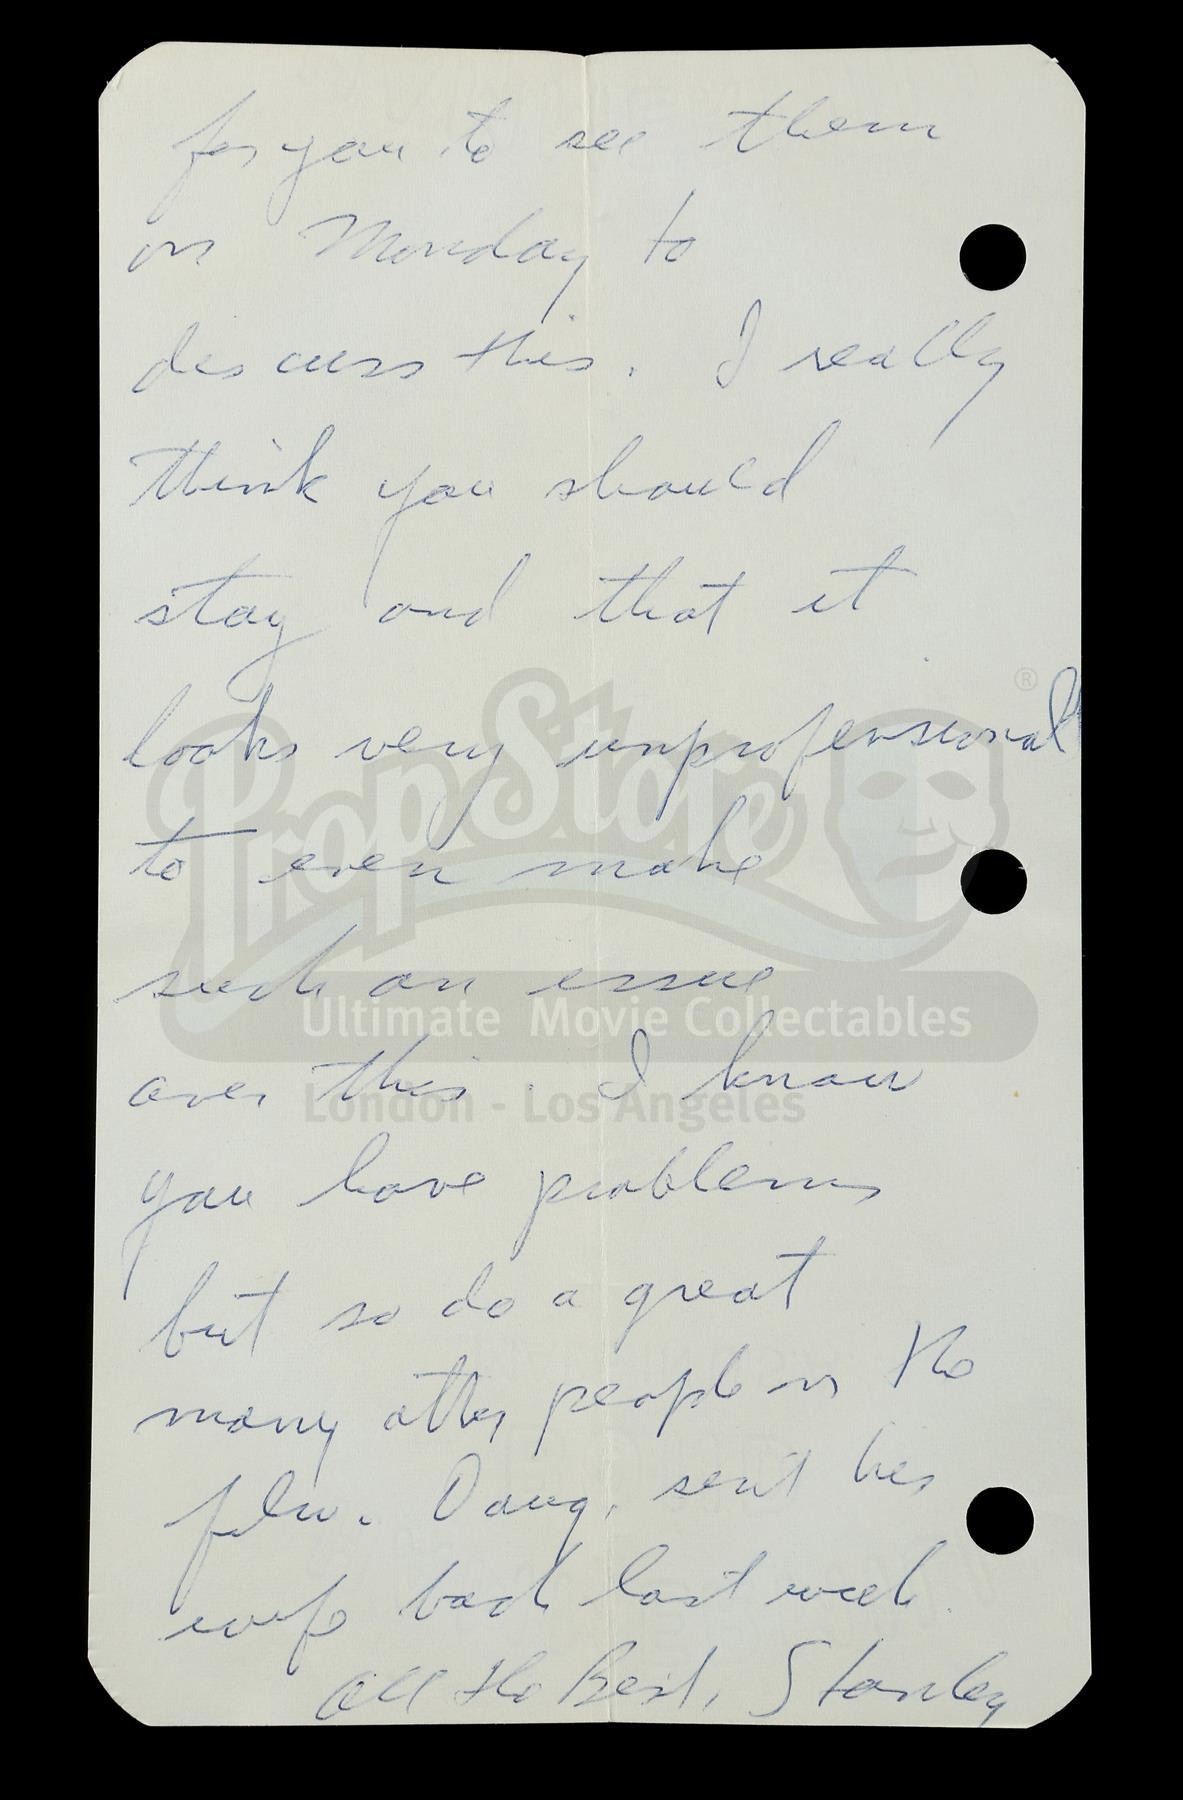 for you to see them
on Monday to
discuss this. I really
think you should
stay and that it
looks very unprofessional
to even make
such an issue
over this. I know
you have problems
but so do a great
many other people in the
film. Doug, sent his
wife back last week.
All the Best, Stanley
PropStore
®
Ultimate Movie Collectables
London - Los Angeles